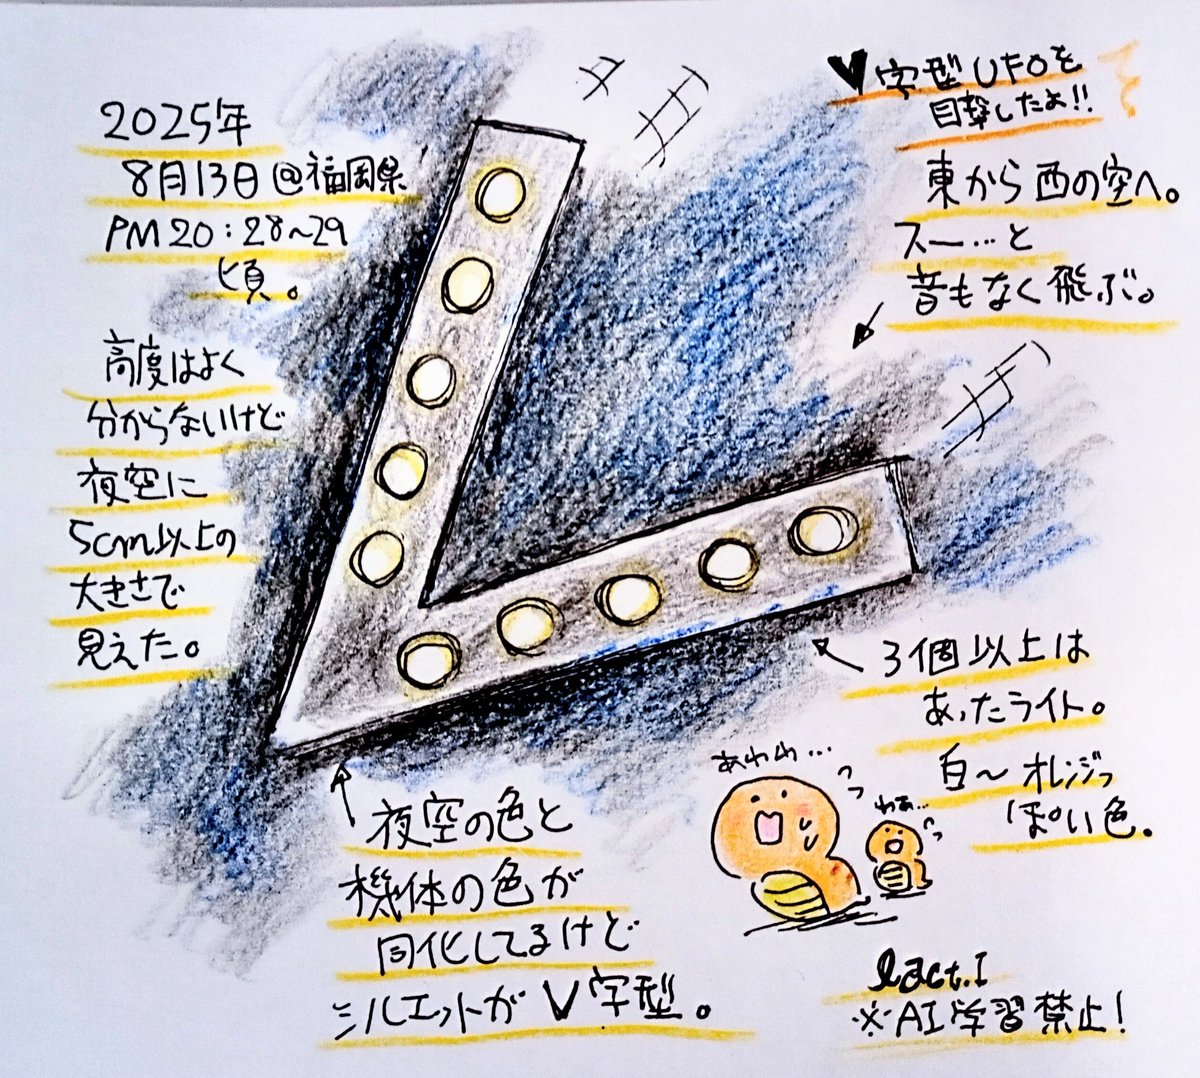 2025年
8月13日@福岡県
PM20:28〜29
頃。
高度はよく
分からないけど
夜空に
5cm以上の
大きさで
見えた。
V字型UFOを
目撃したよ!!
東から西の空へ。
スー…と
音もなく飛ぶ。
3個以上は
あったライト。
白〜オレンジっ
ぽい色。
あわわ…
わあ…
夜空の色と
機体の色が
同化してるけど
シルエットがV字型。
lact.I
※AI学習禁止!